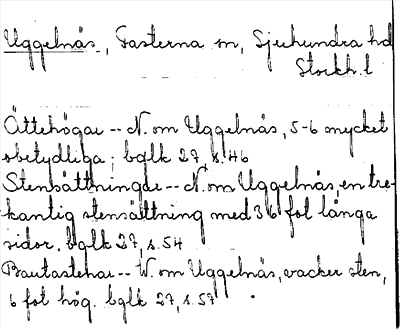 Uggelnäs, Fasterna sn, Sjuhundra hd
Stockh. l
Ättehögar -- N. om Uggelnäs, 5-6 mycket
obetydliga; bglk 27, s. 46
Stensättningar -- N. om Uggelnäs, en tre-
kantig stensättning med 36 fot långa
sidor. bglk 27, s. 54
Bautastenar -- W. om Uggelnäs, vacker sten,
6 fot hög. bglk 27, s. 57